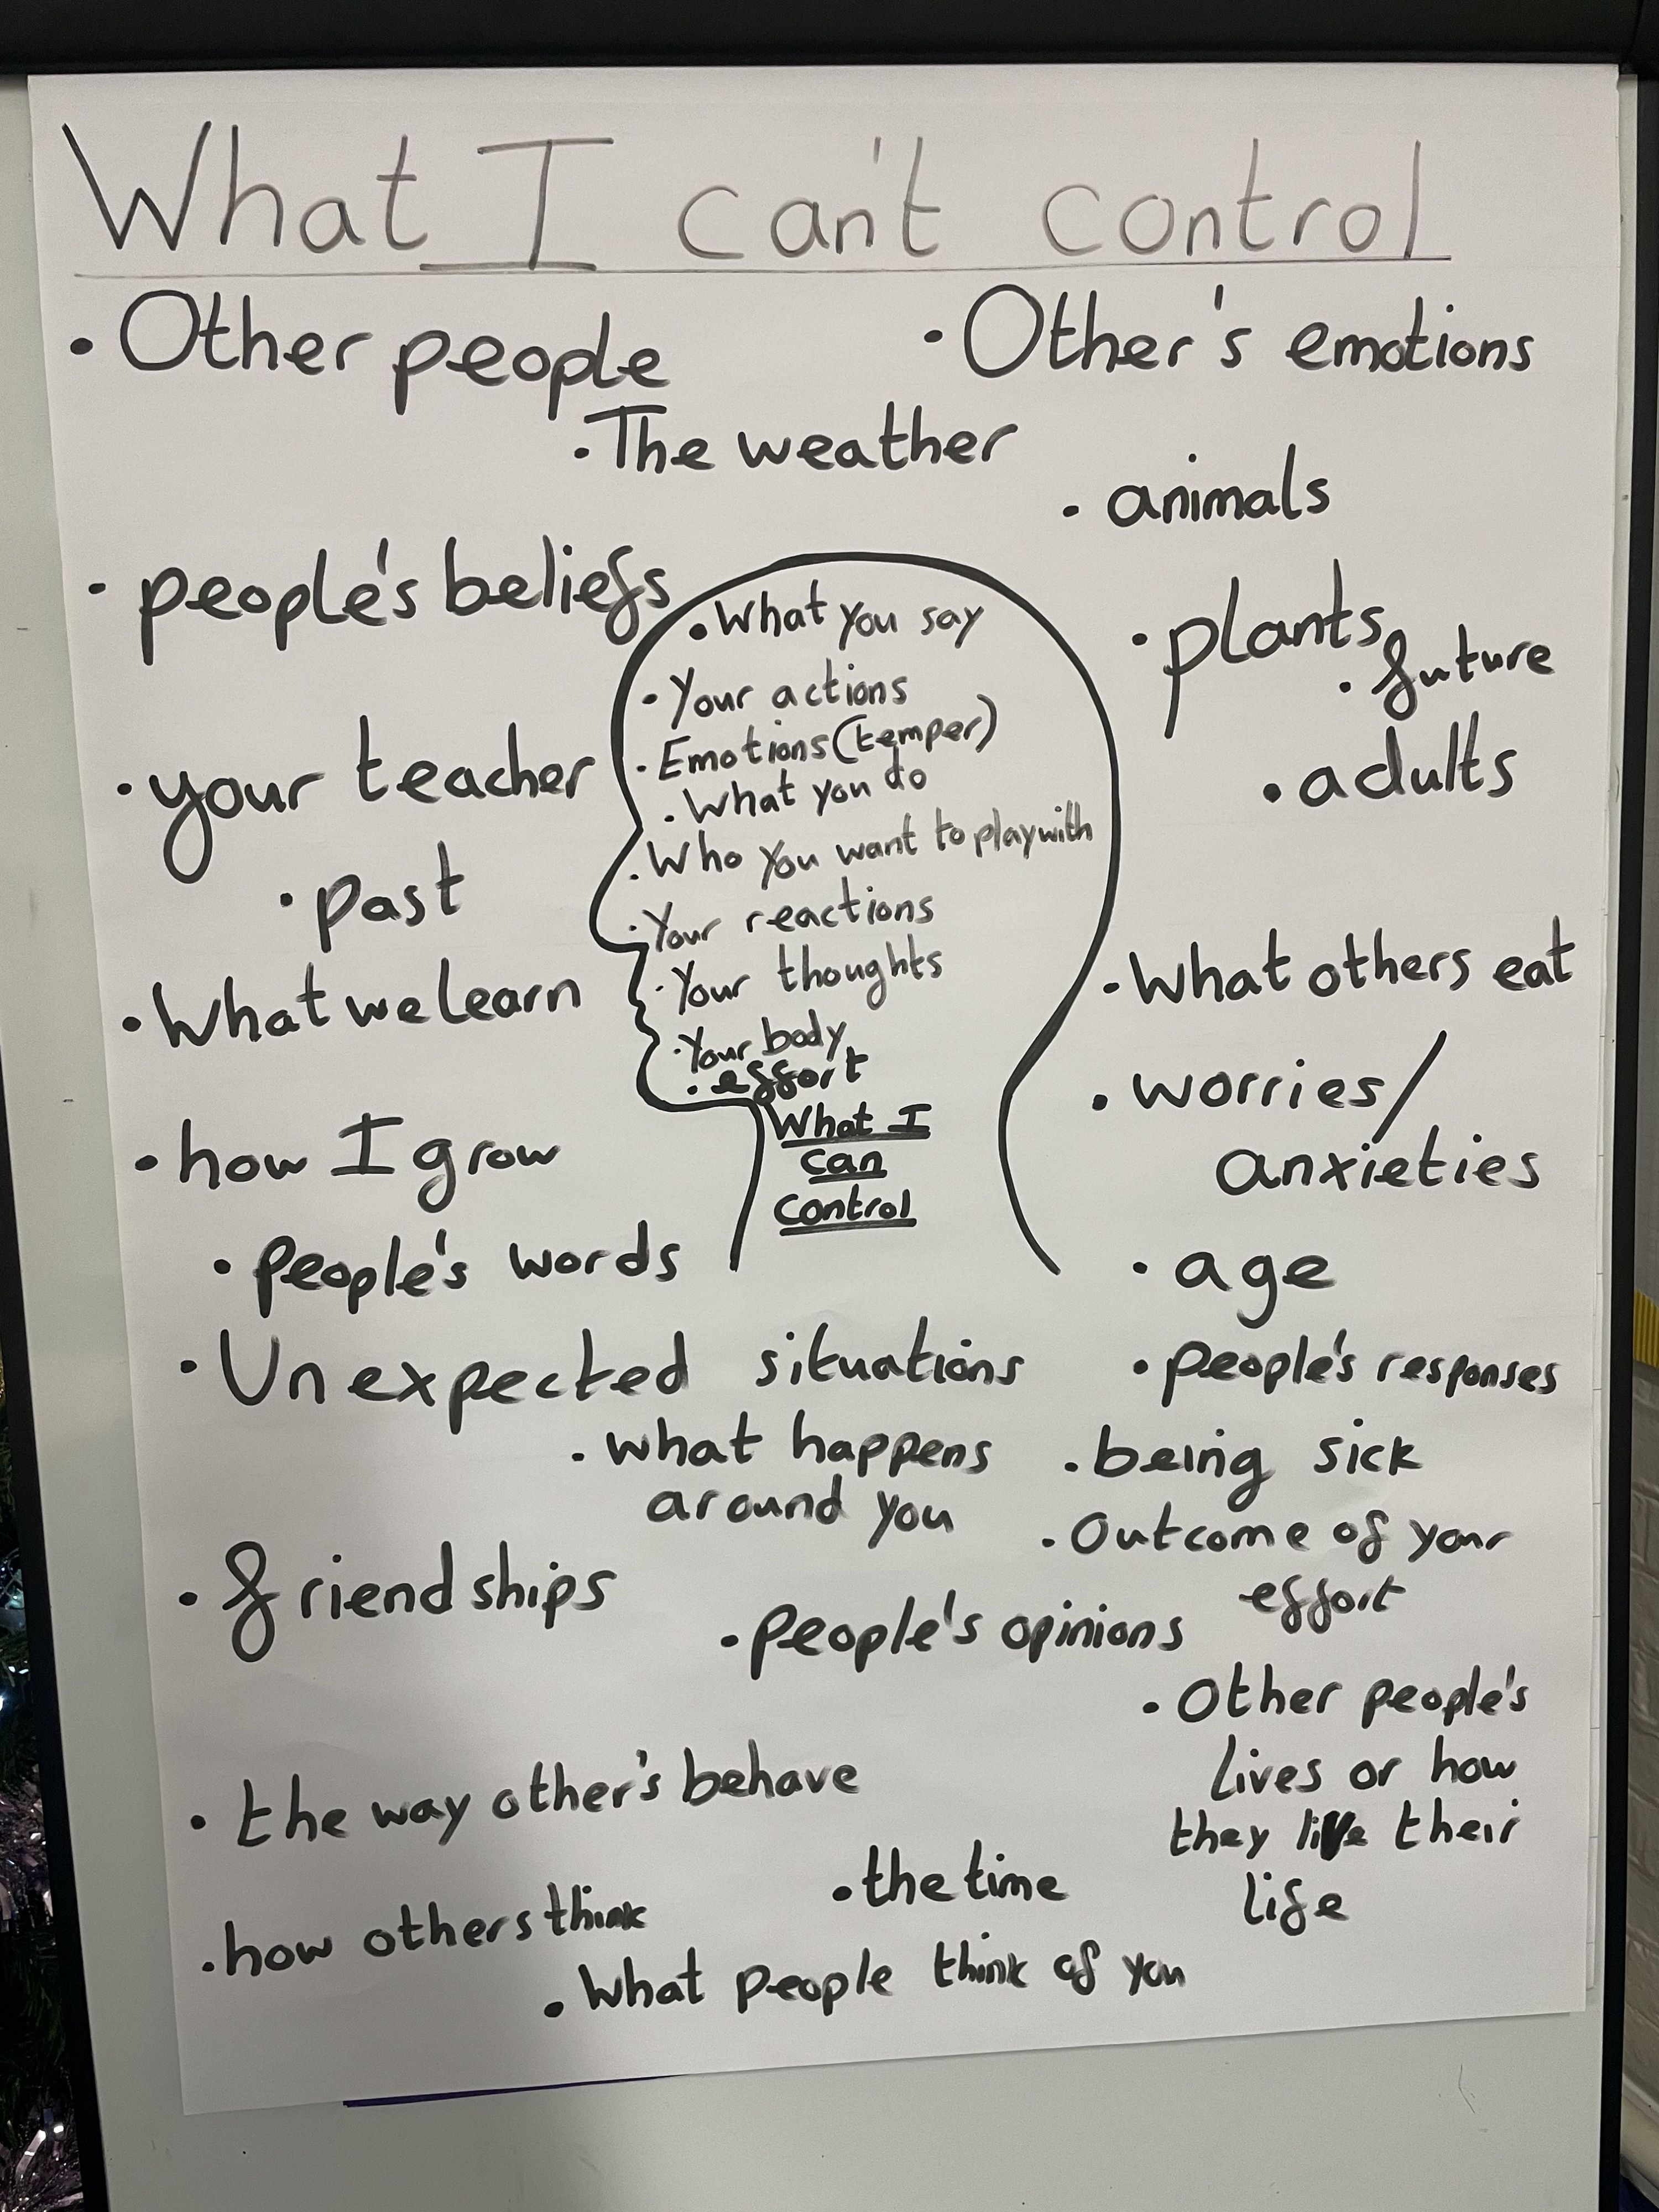 What I can't control
• Other people
• Other's emotions
• The weather
• animals
• people's beliefs
• plants
• future
• your teacher
• adults
• past
• What we learn
• What others eat
• worries/
anxieties
• how I grow
• people's words
• age
• Unexpected situations
• people's responses
• what happens
around you
• being sick
• Outcome of your
effort
• friendships
• people's opinions
• Other people's
lives or how
they live their
life
• the way other's behave
• the time
• how others think
• What people think of you
• What you say
• Your actions
• Emotions (temper)
• What you do
• Who you want to play with
• Your reactions
• Your thoughts
• Your body
• effort
What I
can
control